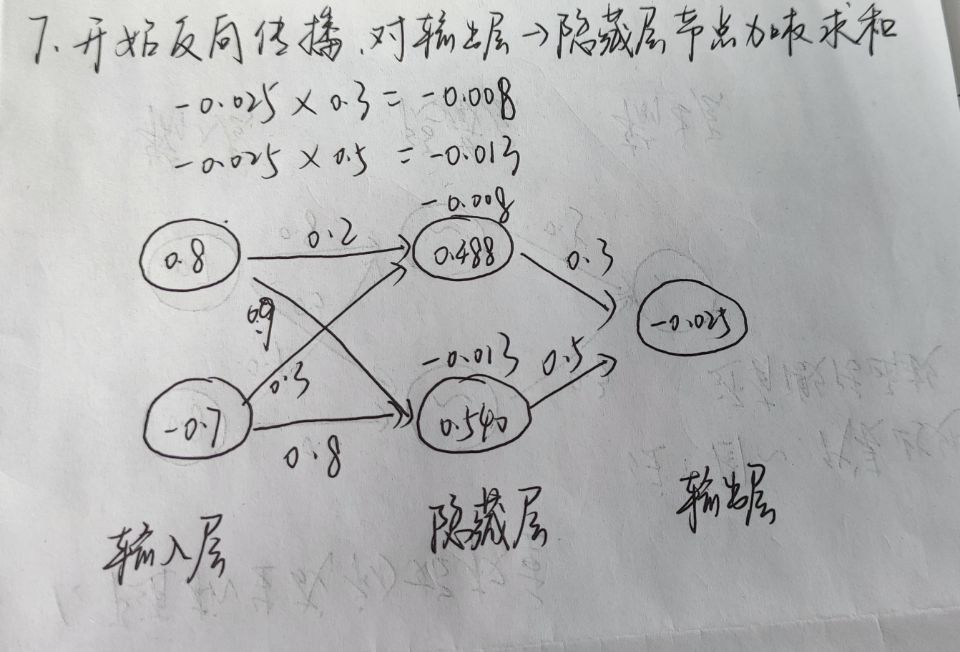 7. 开始反向传播.对输出层→隐藏层节点加权求和
-0.025 × 0.3 = -0.008
-0.025 × 0.5 = -0.013
-0.008
0.8
0.2
0.488
0.3
0.9
-0.025
-0.013
0.5
0.3
-0.7
0.540
0.8
输入层
隐藏层
输出层